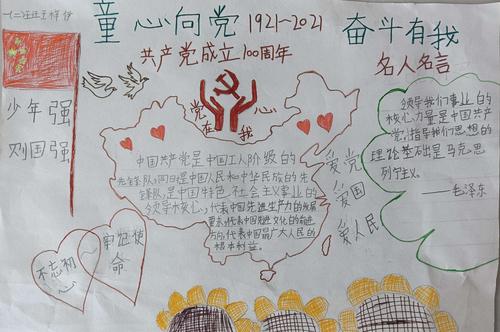 童心向党 1921~2021 奋斗有我
共产党成立100周年
名人名言
少年强
则国强
党在我心
中国共产党是中国工人阶级的
先锋队,同时是中国人民和中华民族的先
锋队,是中国特色社会主义事业的
领导核心,代表中国先进生产力的发展
要求,代表中国先进文化的前进
方向,代表中国最广大人民的
根本利益。
爱党
爱国
爱人民
领导我们事业的
核心力量是中国共产
党,指导我们思想的
理论基础是马克思
列宁主义。
——毛泽东
不忘初心
牢记使
命